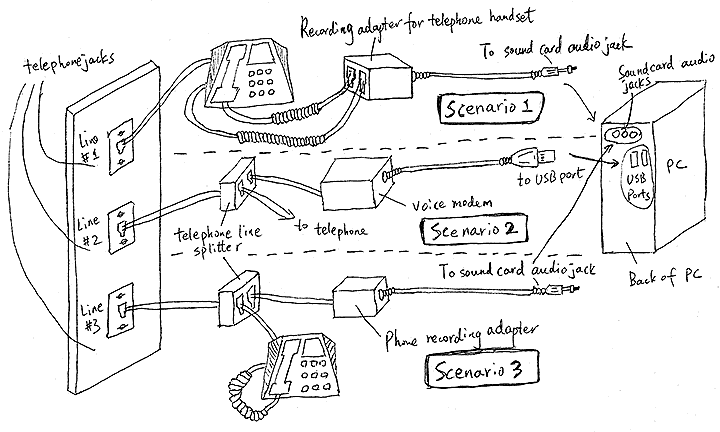 Recording adapter for telephone handset
telephone jacks
To sound card audio jack
Sound card audio
jacks
Scenario 1
Line
#1
PC
USB
Ports
to USB port
voice modem
Line
#2
telephone line
splitter
to telephone
Scenario 2
To sound card audio jack
Back of PC
Line
#3
Phone recording adapter
Scenario 3